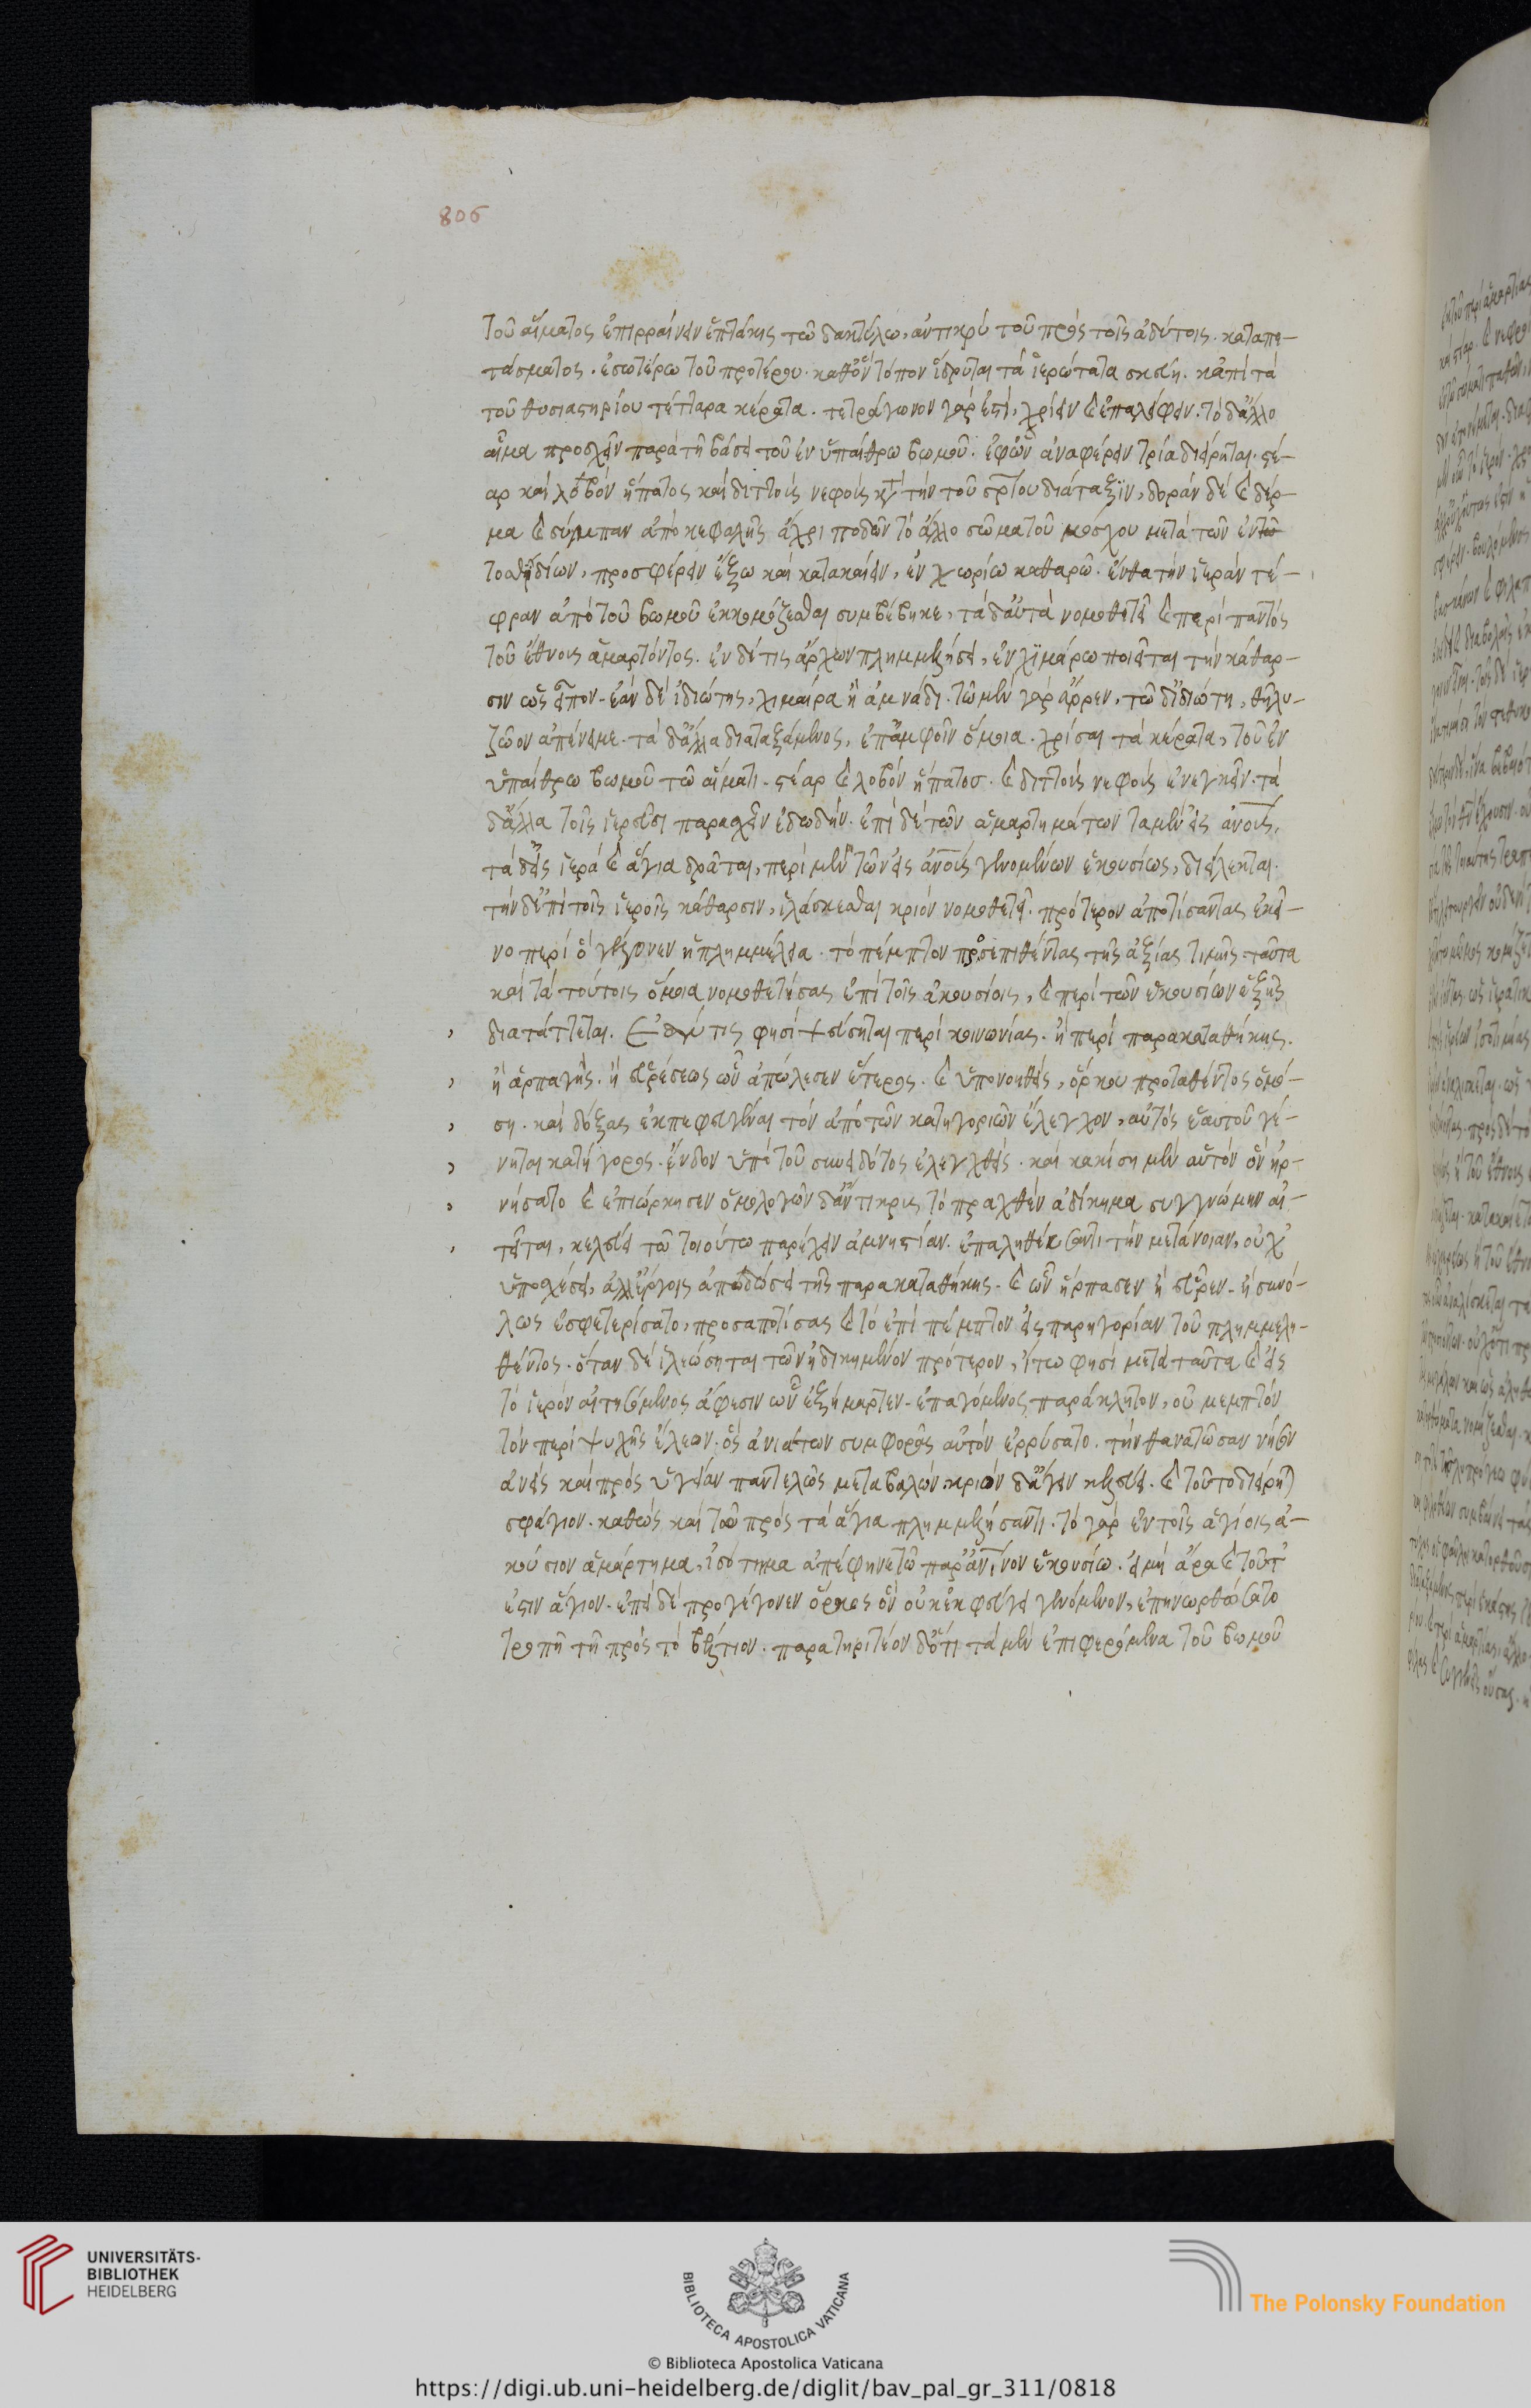 806
τοῦ αἵματος ἐπιρραίνειν ἑπτάκις τῶ δακτύλω, ἀντικρὺ τοῦ πρὸς τοῖς ἀδύτοις. καταπε-
τάσματος. ἐσωτέρω τοῦ προτέρου. καθ' ὃν τόπον ἵδρυται τὰ ἱερώτατα σκεύη. κἀπὶ τὰ
τοῦ θυσιαστηρίου τέτταρα κέρατα. τετράγωνον γάρ ἐστι, χρίειν καὶ ἐπαλείφειν. τὸ δ' ἄλλο
αἷμα προσχεῖν παρὰ τῆ βάσει τοῦ ἐν ὑπαίθρω βωμοῦ. ἐφ' ὃν ἀναφέρειν τρία διείρηται. στέ-
αρ καὶ λοβὸν ἥπατος καὶ διττοὺς νεφροὺς κατὰ τὴν τοῦ σωτηρίου διάταξιν, δορὰν δὲ καὶ δέρ-
μα καὶ σύμπαν ἀπὸ κεφαλῆς ἄχρι ποδῶν τὸ ἄλλο σῶμα τοῦ μόσχου μετὰ τῶν ἐντο
τοσθηδίων, προσφέρειν ἔξω καὶ κατακαίειν, ἐν χωρίω καθαρῶ. ἔνθα τὴν ἱερὰν τέ-
φραν ἀπὸ τοῦ βωμοῦ ἐκκομίζεσθαι συμβέβηκε, τὰ δ' αὐτὰ νομοθετεῖ καὶ περὶ παντὸς
τοῦ ἔθνους ἁμαρτόντος. ἐὰν δέ τις ἄρχων πλημμελήσει, ἐν χιμάρω ποιεῖται τὴν κάθαρ-
σιν ὡς εἶπον. ἐὰν δὲ ἰδιώτης, χιμαίρα ἢ ἀμνάδι. τῶ μὲν γὰρ ἄρρεν, τῶ δ' ἰδιώτη, θῆλυ
ζῶον ἀπένειμε. τὰ δ' ἄλλα διαταξάμενος, ἐπ' ἀμφοῖν ὅμοια. χρίσαι τὰ κέρατα, τοῦ ἐν
ὑπαίθρω βωμοῦ τῶ αἵματι. στέαρ καὶ λοβὸν ἥπατοσ. καὶ διττοὺς νεφροὺς ἐνεγκεῖν. τὰ
δ' ἄλλα τοῖς ἱερεῦσι παρασχεῖν ἐδωδήν. ἐπεὶ δὲ τῶν ἁμαρτημάτων τὰ μὲν εἰς ἀνους,
τὰ δ' εἰς ἱερὰ καὶ ἅγια δρᾶται, περὶ μὲν τῶν εἰς ἀνους γινομένων ἑκουσίως, διείλεκται.
τὴν δ' ἐπὶ τοῖς ἱεροῖς κάθαρσιν, ἱλάσκεσθαι κριὸν νομοθετεῖ. πρότερον ἀποτίσαντας ἐκεῖ-
νο περὶ ὃ γέγονεν ἡ πλημμέλεια. τὸ πέμπτον προσεπιθέντας τῆς ἀξίας τιμῆς. ταῦτα
καὶ τὰ τούτοις ὅμοια νομοθετήσας ἐπὶ τοῖς ἀκουσίοις, καὶ περὶ τῶν ἑκουσίων ἑξῆς
διατάττεται. ἐάν τις φησὶ ψεύσηται περὶ κοινωνίας. ἢ περὶ παρακαταθήκης.
ἢ ἁρπαγῆς. ἢ εὑρέσεως ὧν ἀπώλεσεν ἕτερος. καὶ ὑπονοηθεὶς, ὅρκου προταθέντος ὀμό-
ση. καὶ δόξας ἐκπεφευγέναι τὸν ἀπὸ τῶν κατηγοριῶν ἔλεγχον, αὐτὸς ἑαυτοῦ γέ-
νηται κατήγορος. ἔνδον ὑπὸ τοῦ συνειδότος ἐλεγχθεὶς. καὶ κακίση μὲν αὑτὸν ὃν ἠρ-
νήσατο καὶ ἐπιώρκησεν ὁμολογῶν δ' ἄντικρυς τὸ πραχθὲν ἀδίκημα συγγνώμην αἰ-
τεῖται, κελεύει τῶ τοιούτω παρέχειν ἀμνηστίαν. ἐπαληθεύσαντι τὴν μετάνοιαν, οὐχ
ὑποσχέσει, ἀλλ' ἔργοις ἀποδώσει τῆς παρακαταθήκης. καὶ ὧν ἥρπασεν ἢ εὗρεν. ἢ συνό-
λως ἐσφετερίσατο, προσαποτίσας καὶ τὸ ἐπὶ πέμπτον εἰς παρηγορίαν τοῦ πλημμελη-
θέντος. ὅταν δὲ ἱλεώσηται τὸν ἠδικημένον πρότερον, ἴτω φησὶ μετὰ ταῦτα καὶ εἰς
τὸ ἱερὸν αἰτησόμενος ἄφεσιν ὧν ἐξήμαρτεν. ἐπαγόμενος παράκλητον, οὐ μεμπτὸν
τὸν περὶ ψυχῆς ἔλεον. ὃς ἀνιάτων συμφορᾶς αὐτὸν ἐρρύσατο. τὴν θανατῶσαν νόσον
ἀνεὶς καὶ πρὸς ὑγείαν παντελῶς μεταβαλών. κριὸν δ' ἄγειν κελεύει. καὶ τοῦτο διείρηται
σφάγιον. καθὼς καὶ τῶ πρὸς τὰ ἅγια πλημμελήσαντι. τὸ γὰρ ἐν τοῖς ἁγίοις ἀ-
κούσιον ἁμάρτημα, ἰσότιμα ἀπέφηνε τῶ παρ' ἀνινον ἑκουσίω. εἰ μὴ ἄρα καὶ τοῦτ'
ἐστιν ἅγιον. ἐπεὶ δὲ προγέγονεν ὅρκος ὃν οὐκ ἐκφεύγει γενόμενον, ἐπηνωρθώσατο
τροπῆ τῆ πρὸς τὸ βέλτιον. παρατηριτέον δ' ὅτι τὰ μὲν ἐπιφερόμενα τοῦ βωμοῦ
UNIVERSITÄTS-
BIBLIOTHEK
HEIDELBERG
BIBLIOTECA APOSTOLICA VATICANA
The Polonsky Foundation
© Biblioteca Apostolica Vaticana
https://digi.ub.uni-heidelberg.de/diglit/bav_pal_gr_311/0818